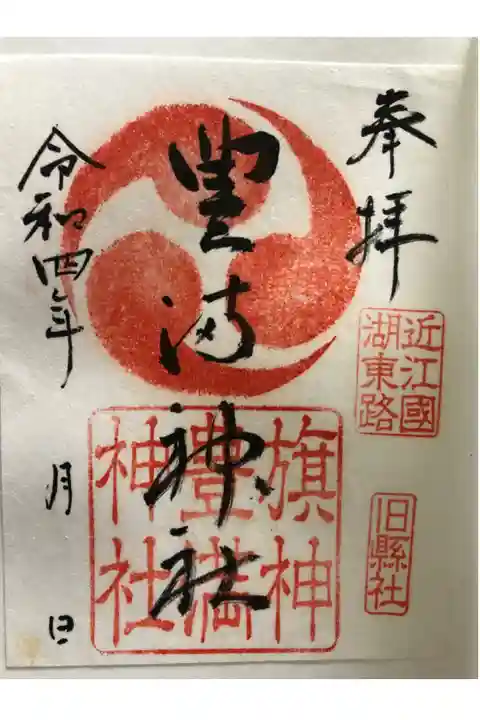 奉拝
近江國
湖東路
旧縣社
豊満神社
旗神
豊満
神社
令和四年 月 日